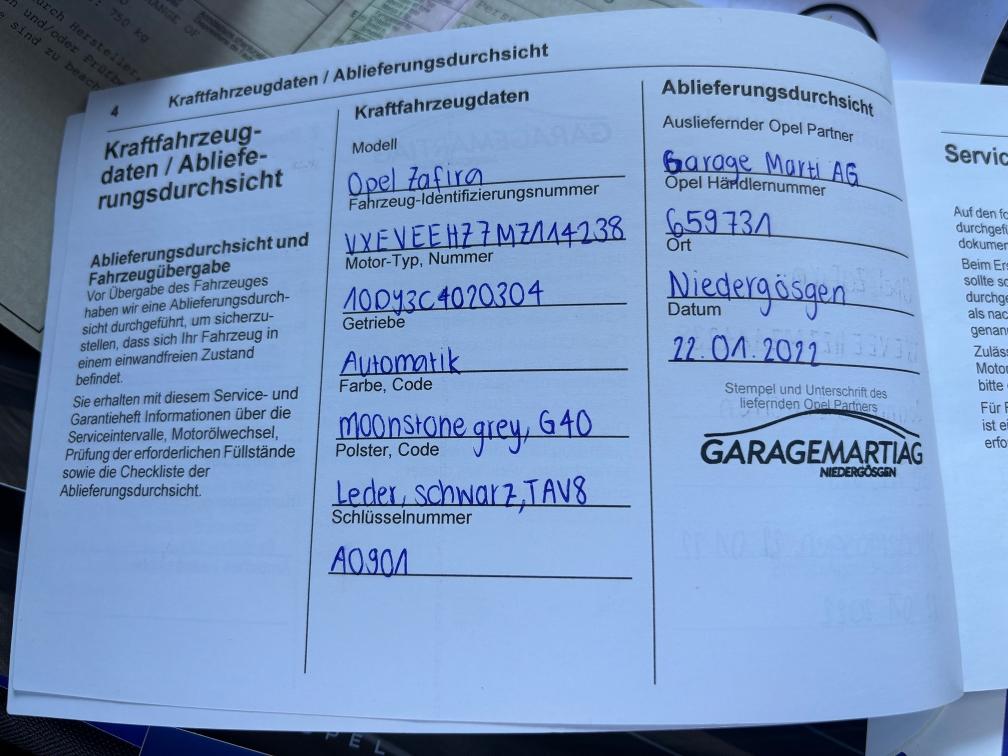 4 Kraftfahrzeugdaten / Ablieferungsdurchsicht
Kraftfahrzeug-
daten / Abliefe-
rungsdurchsicht
Ablieferungsdurchsicht und
Fahrzeugübergabe
Vor Übergabe des Fahrzeuges
haben wir eine Ablieferungsdurch-
sicht durchgeführt, um sicherzu-
stellen, dass sich Ihr Fahrzeug in
einem einwandfreien Zustand
befindet.
Sie erhalten mit diesem Service- und
Garantieheft Informationen über die
Serviceintervalle, Motorölwechsel,
Prüfung der erforderlichen Füllstände
sowie die Checkliste der
Ablieferungsdurchsicht.
Kraftfahrzeugdaten
Modell
Opel Zafira
Fahrzeug-Identifizierungsnummer
VXEVEEHZ7MZ114238
Motor-Typ, Nummer
10DY3C4020304
Getriebe
Automatik
Farbe, Code
moonstone grey, G40
Polster, Code
Leder, schwarz, TAV8
Schlüsselnummer
A0901
Ablieferungsdurchsicht
Ausliefernder Opel Partner
Garage Marti AG
Opel Händlernummer
659731
Ort
Niedergösgen
Datum
22.01.2022
Stempel und Unterschrift des
liefernden Opel Partners
GARAGEMARTIAG
NIEDERGÖSGEN
Servic
Auf den fo
durchgefü
dokumen
Beim Ers
sollte so
durchge
als nac
genan
Zuläss
Motor
bitte
Für F
ist ei
erfo
750 kg
durch Hersteller
und/oder Prüfbe
sind zu beach